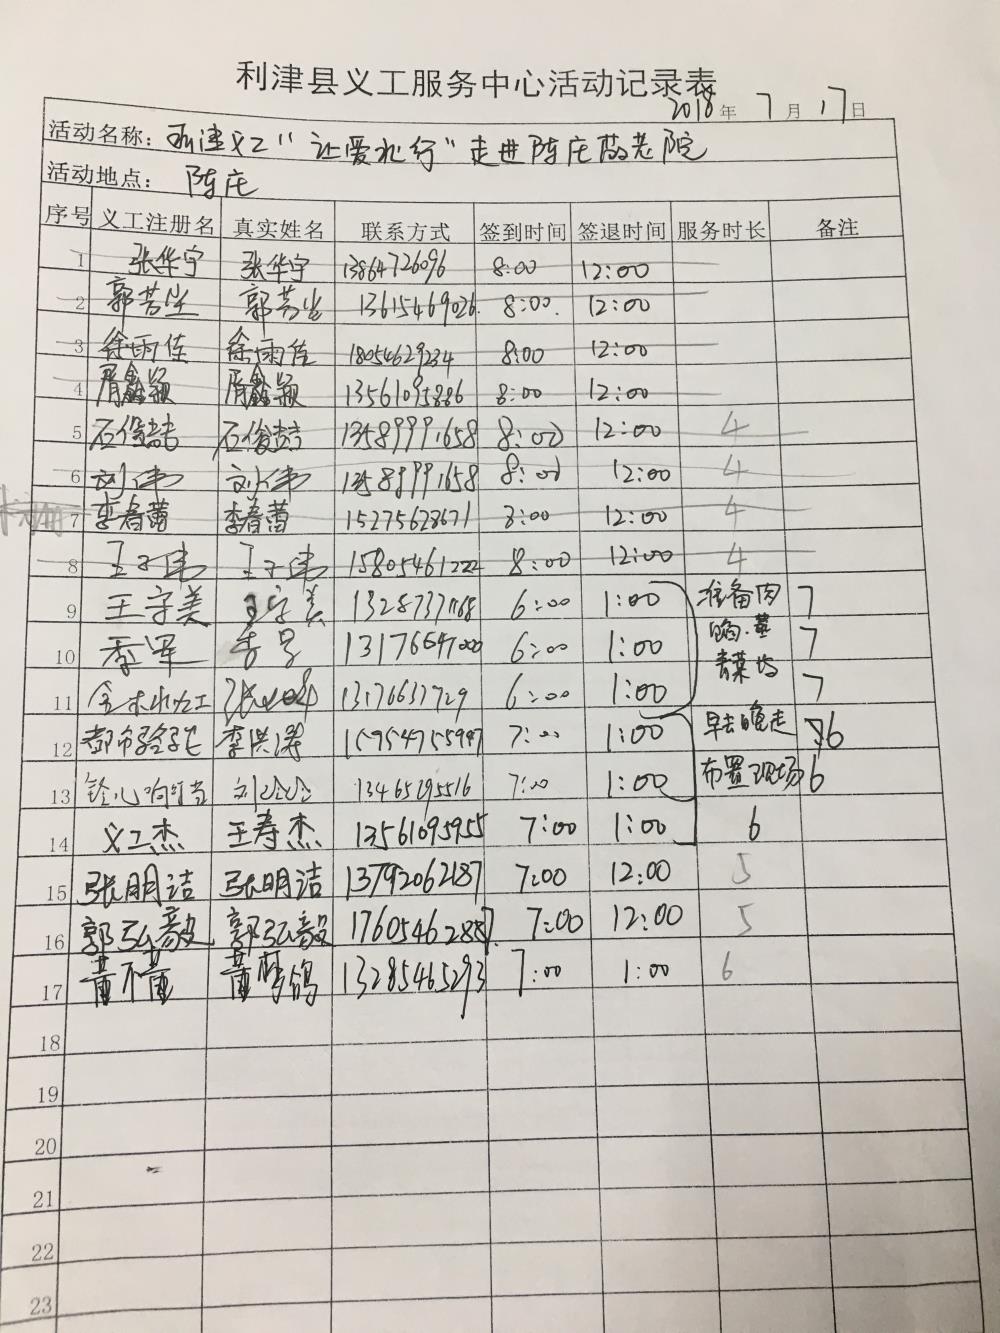 利津县义工服务中心活动记录表
2018年 7月17日
活动名称: 利津义工"让爱礼行"走进陈庄敬老院
活动地点: 陈庄
序号 义工注册名 真实姓名 联系方式 签到时间 签退时间 服务时长 备注
1 张华宇 张华宇 13864726096 8:00 12:00
2 郭芳坐 郭芳坐 13615469026. 8:00. 12:00
3 徐雨佳 徐雨佳 18054629234 8:00 12:00
4 胥鑫颖 胥鑫颖 13561095886 8:00 12:00
5 石俊喆 石俊喆 13589991658 8:00 12:00 4
6 刘伟 刘伟 13589991658 8:00 12:00 4
7 李春蕾 李春蕾 15275628671 8:00 12:00 4
8 王子伟 王子伟 15805461222 8:00 12:00 4
9 王守美 王守美 13287371168 6:00 1:00 准备肉 7
10 季军 13176647000 6:00 1:00 馅. 7
11 13176637729 6:00 1:00 青菜 7
12 李洪涛 15954755997 7:00 1:00 早去晚走 6
13 铃儿响叮当 刘玲玲 13465295516 7:00 1:00 布置现场 6
14 义工杰 王寿杰 13561095955 7:00 1:00 6
15 张明洁 张明洁 13792062187 7:00 12:00 5
16 郭弘毅 郭弘毅 17605462887. 7:00 12:00 5
17 董不董 董梦鸽 13285465293 7:00 1:00 6
18
19
20
21
22
23